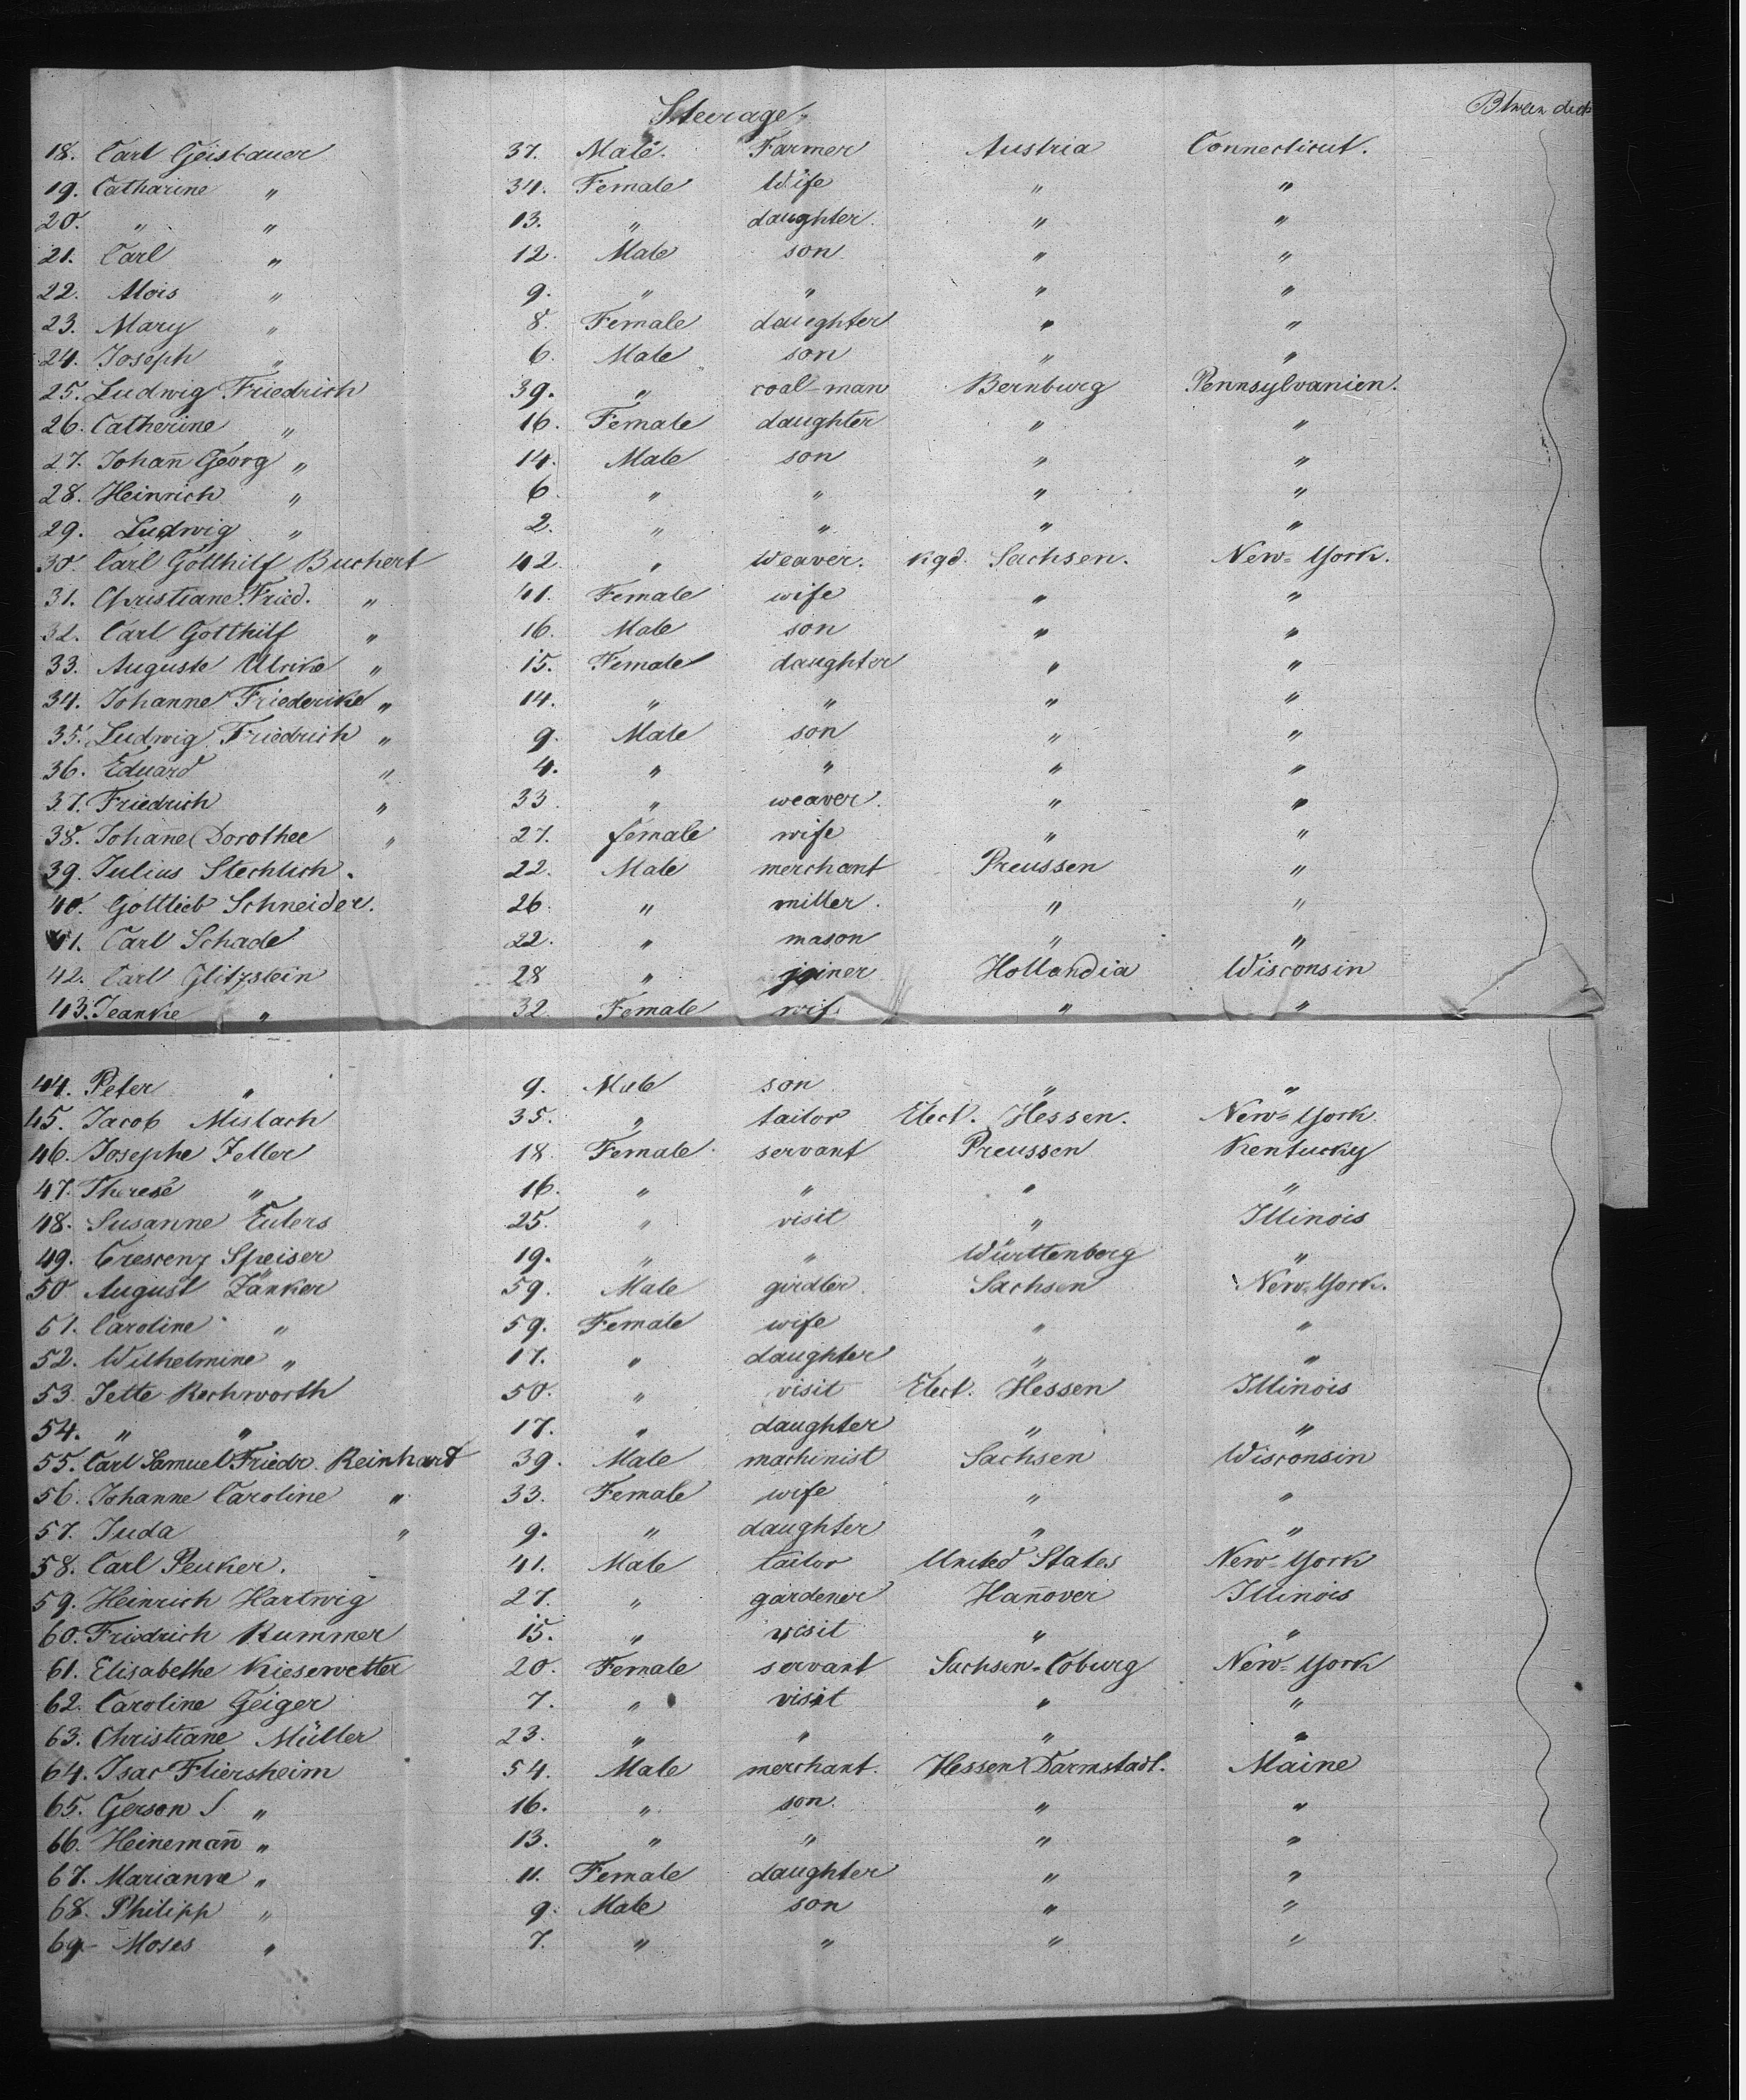 Steerage.
Btween deck
18. Carl Geisbauer 37. Male. Farmer Austria Connecticut.
19. Catharine " 34. Female Wife " "
20. " " 13. " daughter. " "
21. Carl " 12. Male son. " "
22. Alois " 9. " " " "
23. Mary " 8. Female daughter " "
24. Joseph " 6. Male son " "
25. Ludwig Friedrich 39. " coal-man Bernburg Pennsylvanien.
26. Catherine " 16. Female daughter " "
27. Johan̄ Georg " 14. Male son " "
28. Heinrich " 6. " " " "
29. Ludwig " 2. " " " "
30. Carl Gotthilf Buchert 42. " Weaver. Kgd. Sachsen. New=York.
31. Christiane Fried. " 41. Female wife " "
32. Carl Gotthilf " 16. Male son " "
33. Auguste Ulrike " 15. Female daughter " "
34. Johanne Friederike " 14. " " " "
35. Ludwig Friedrich " 9. Male son " "
36. Eduard " 4. " " " "
37. Friedrich " 33. " weaver. " "
38. Johane Dorothee " 27. female wife " "
39. Julius Stechlich. 22. Male merchant Preussen "
40. Gottlieb Schneider. 26. " miller. " "
41. Carl Schade 22. " mason " "
42. Carl Glitzstein 28 " joiner Hollandia Wisconsin
43. Jeanke " 32. Female wife " "
44. Peter " 9. Male son " "
45. Jacob Mislach 35. " tailor Elect. Hessen. New=York.
46. Josephe Zeller 18. Female servant Preussen Kentucky
47. Therese " 16. " " " "
48. Susanne Eulers 25. " visit " Illinois
49. Crescenz Speiser 19. " " Württenberg "
50 August Zänker 59. Male girdler. Sachsen New=York.
51. Caroline " 59. Female wife " "
52. Wilhelmine " 17. " daughter " "
53. Jette Rechworth 50. " visit Elect. Hessen Illinois
54. " " 17. " daughter " "
55. Carl Samuel Friedr. Reinhard 39. Male machinist Sachsen Wisconsin
56. Johanne Caroline " 33. Female wife " "
57. Juda " 9. " daughter " "
58. Carl Peuker. 41. Male tailor United States New=York
59. Heinrich Hartwig 27. " gardener Han̄over Illinois
60. Friedrich Kummer 15. " visit " "
61. Elisabethe Kiesewetter 20. Female servant Sachsen-Coburg New=York
62. Caroline Geiger 7. " visit " "
63. Christiane Müller 23. " " " "
64. Isac Fliersheim 54. Male merchant. Hessen Darmstadt. Maine
65. Gerson S. " 16. " son. " "
66. Heineman̄ " 13. " " " "
67. Marianne " 11. Female daughter " "
68. Philipp " 9. Male son " "
69 Moses " 7. " " " "